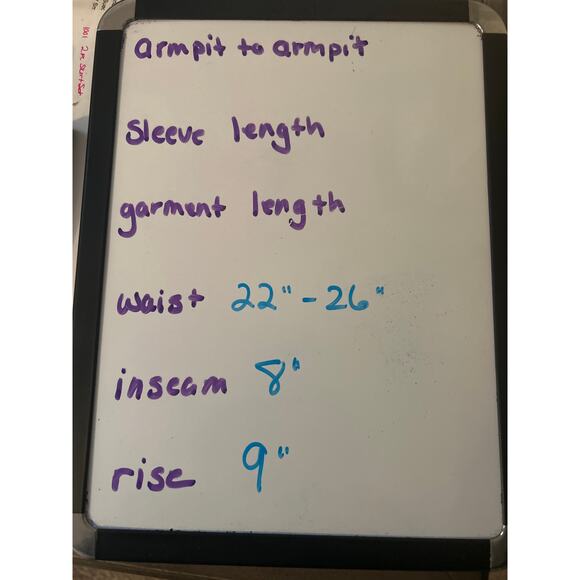 armpit to armpit
sleeve length
garment length
waist 22" - 26"
inseam 8"
rise 9"